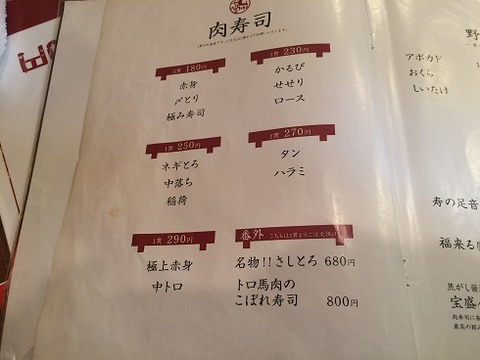 肉寿司
1貫 180円
赤身
〆とり
極み寿司
1貫 230円
かるび
せせり
ロース
1貫 250円
ネギとろ
中落ち
稲荷
1貫 270円
タン
ハラミ
1貫 290円
極上赤身
中トロ
番外 こちらは1貫よりご注文頂け
名物!!さしとろ 680円
トロ馬肉の
こぼれ寿司 800円
野
アボカド
おくら
しいたけ
寿の足音
福来る
焦がし醤
宝盛